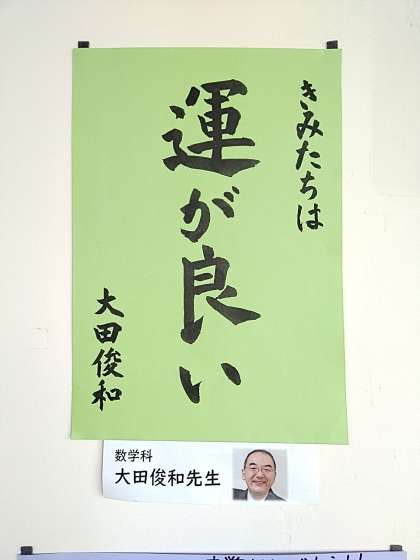 きみたちは
運が良い
大田俊和
数学科
大田俊和先生